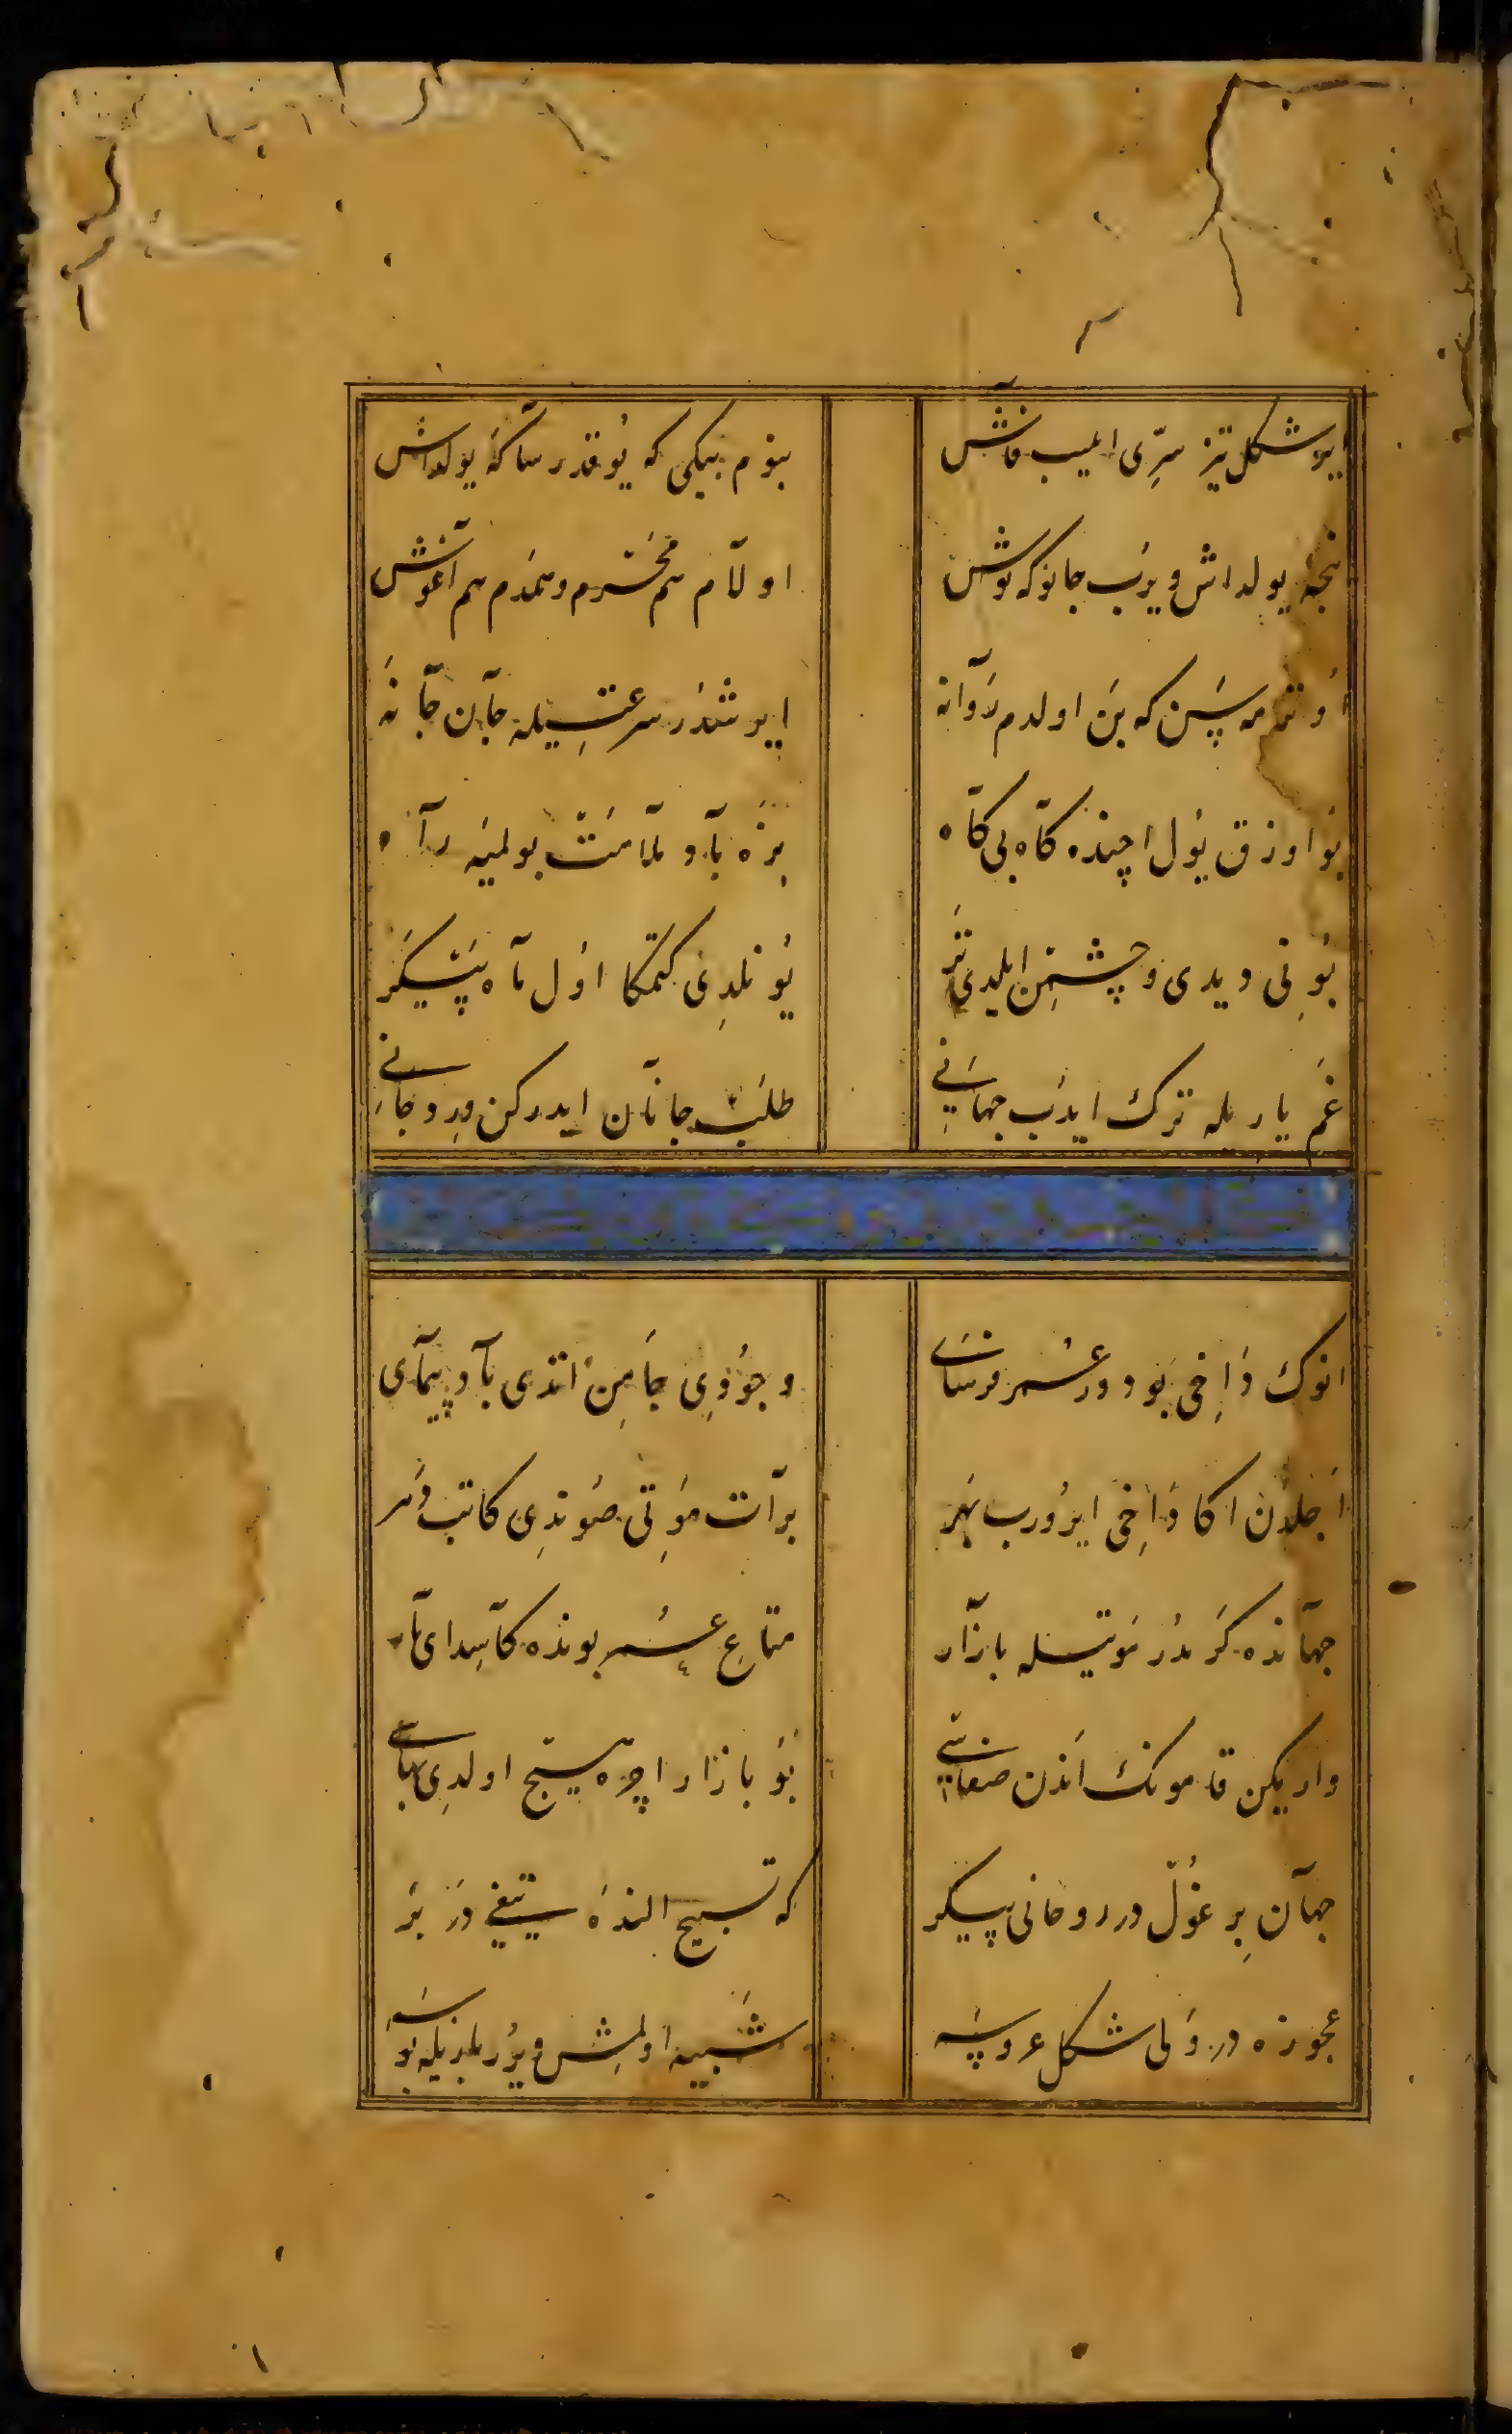 ایرشکل تیز سرّی ایلیب فاش
بنوم بیکی که یوقدر سآ کَه یولداش
نیجه یولداش ویرب جانوکه نوش
اولآم هم محترم و همدم هم آغوش
اونتمه سن که بن اولدم رَوآنه
ایرشدر سرعتیله جآن جآنَه
بو اوزق یول اچنده کآه بی کآه
بزه یآر و ملآمت بولمیه رآه
بونی ویدی و چشمن ایلدی تَر
یونلدی کتمکا اول مآه پیکر
غم یاریله ترک ایدب جهانی
طلب جانآن ایدرکن ویردوجانی
انوک داخی بو دور عمر فرسای
وجودی جامن اتدی بآد پیمآی
اجلدن اکا داخی ایرورب
برآت موتی صوندی کاتب
جهآنده کرمدر موتیله بازآر
متاع عمر بونده کآسد ای یآر
واریکن قامونک اندن صفاسی
بو بازار اچره هیچ اولدی بهاسی
جهآن بر غول در روحانی پیکر
که تسبیح النده تیغی در بر
عجوزه در ولی شکل عروسه
شبیه اولمش ویرر بلر نیله بوسه